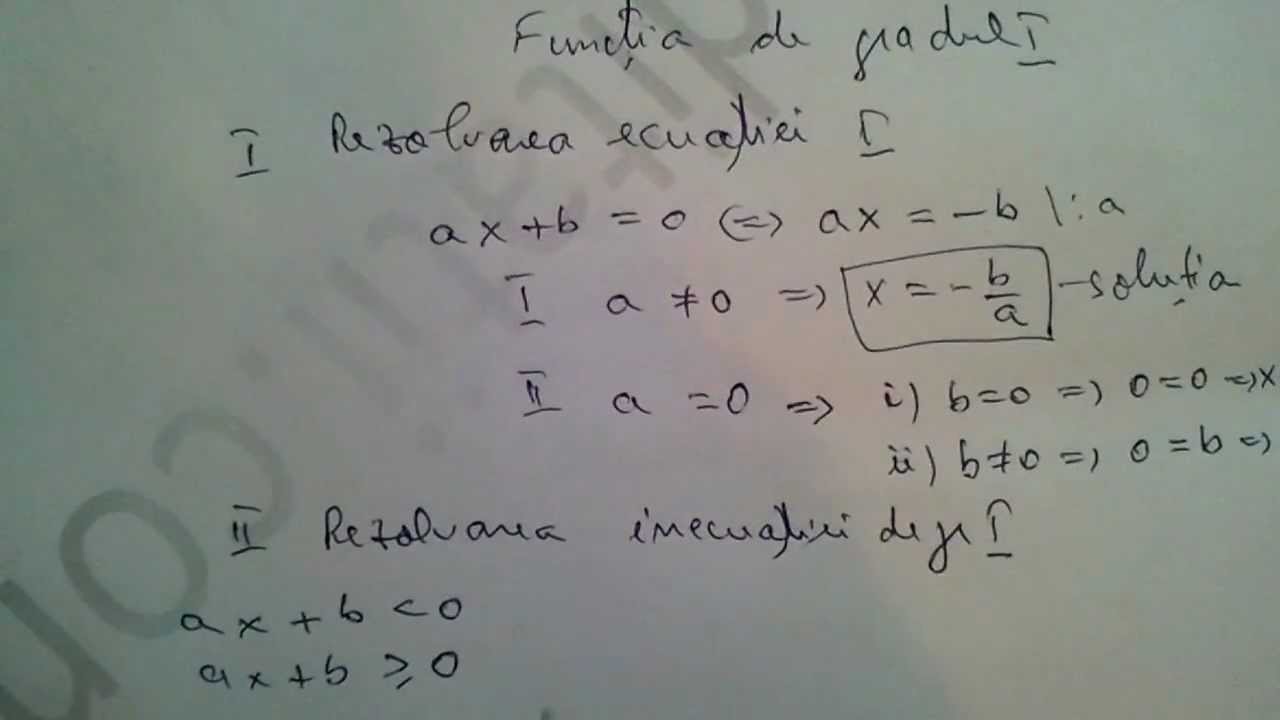 Funcția de gradul I
I Rezolvarea ecuației I
ax+b=0 (=) ax=-b |:a
I a≠0 =) x=-b/a -soluția
II a=0 =) i) b=0 =) 0=0 =)x
ii) b≠0 =) 0=b =)
II Rezolvarea inecuației de gr I
ax+b<0
ax+b≥0